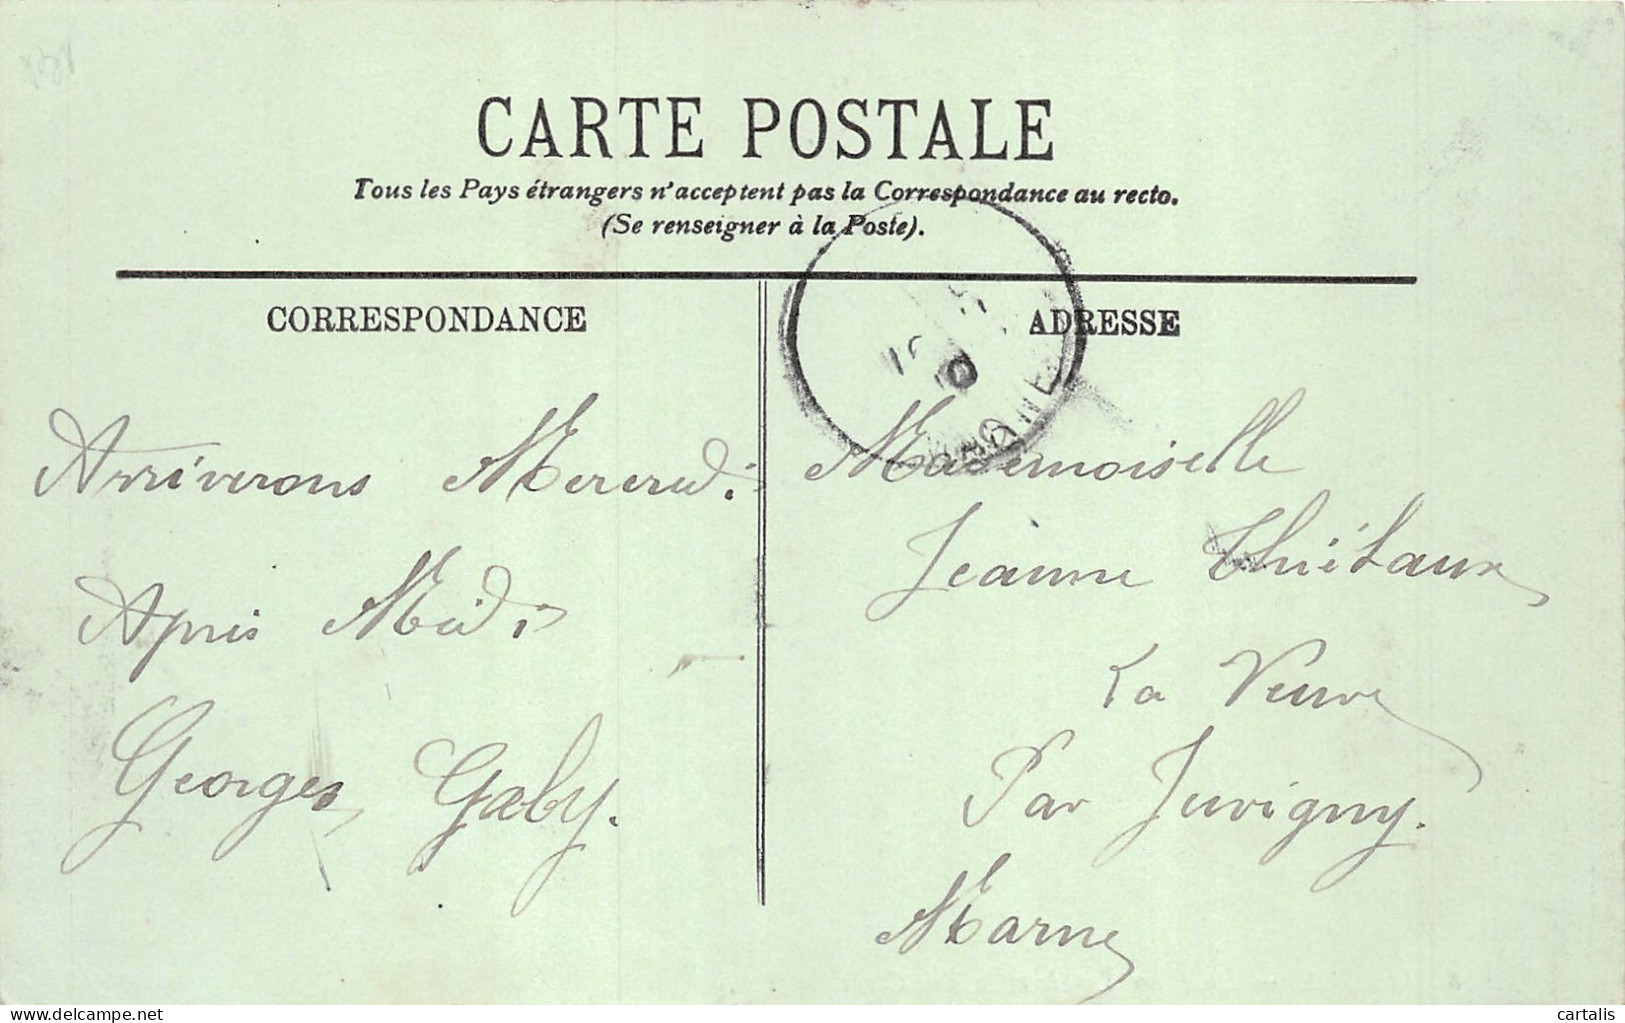 CARTE POSTALE
Tous les Pays étrangers n'acceptent pas la Correspondance au recto.
(Se renseigner à la Poste).
CORRESPONDANCE
Arriverons Mercredi
Après Midi
Georges Gaby.
ADRESSE
Mademoiselle
Jeanne Thiétaux
La Veuve
Par Juvigny.
Marne
delcampe.net
cartalis